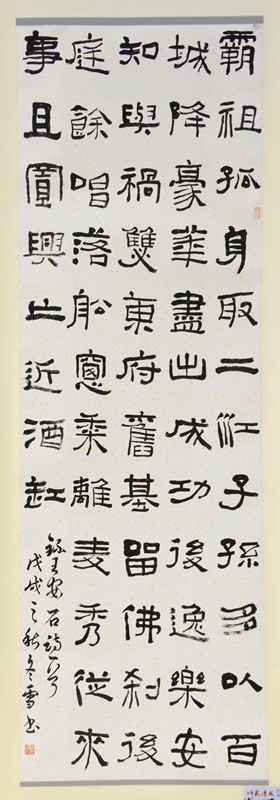 霸祖孤身取二江子孫多以百
城降豪華盡出成功後逸樂安
知與禍雙東府舊基留佛剎後
庭餘唱落舩窻黍離麦秀從來
事且置興亡近酒缸
錄王安石詩一首
戊戌之秋冬雪書